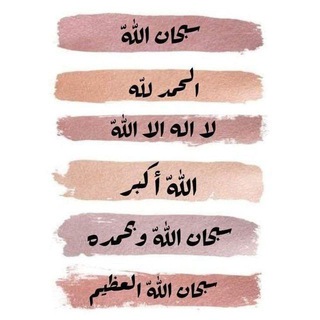 سبحان اللّه
الحمد للّه
لا اله الا اللّه
اللّه أكبر
سبحان اللّه وبحمده
سبحان اللّه العظيم